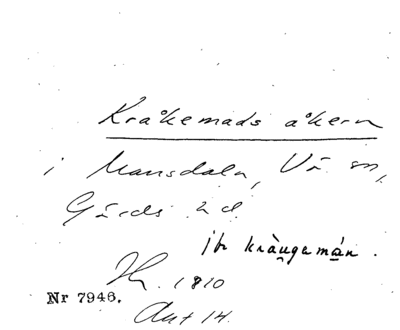 Kråkemads åkern
i Mansdala, Vä sn,
Gärds hd
ibr kràu̱gemá̱n.
1810
Nr 7946.
Akt 14.